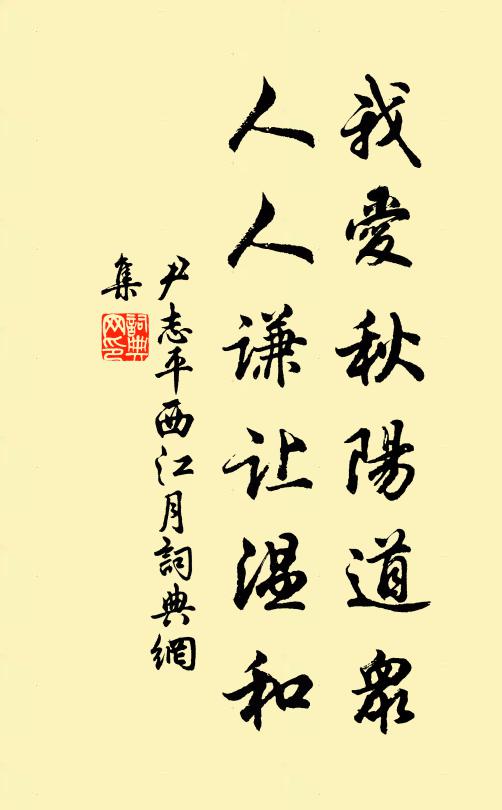 我愛秋陽道眾
人人谦让温和
尹志平西江月詞典網
集
詞典網印